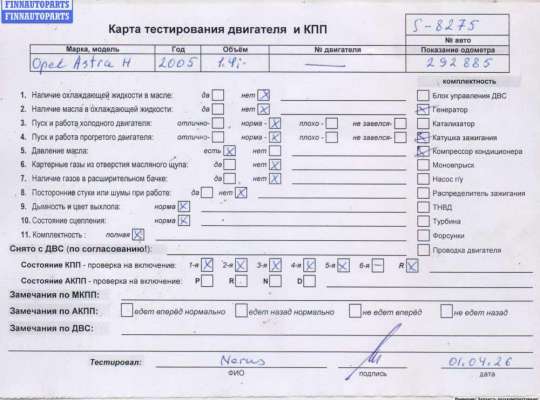 FINNAUTOPARTS
FINNAUTOPARTS
Карта тестирования двигателя и КПП
S-8275
№ авто
Марка, модель Год Объём № двигателя Показание одометра
Opel Astra H 2005 1.4i- — 292885
комплектность
1. Наличие охлаждающей жидкости в масле: да нет x Блок управления ДВС
2. Наличие масла в охлаждающей жидкости: да нет x Генератор
3. Пуск и работа холодного двигателя: отлично- норма - x плохо - не завелся- Катализатор
4. Пуск и работа прогретого двигателя: отлично- норма - x плохо - не завелся- Катушка зажигания
5. Давление масла: есть x нет Компрессор кондиционера
6. Картерные газы из отверстия масляного щупа: да нет x Моновпрыск
7. Наличие газов в расширительном бачке: да нет x Насос г/у
8. Посторонние стуки или шумы при работе: да нет x Распределитель зажигания
9. Дымность и цвет выхлопа: норма x ТНВД
10. Состояние сцепления: норма x Турбина
11. Комплектность : полная x Форсунки
Снято с ДВС (по согласованию!): Проводка двигателя
Состояние КПП - проверка на включение: 1-я x 2-я x 3-я x 4-я x 5-я x 6-я — R x
Состояние АКПП - проверка на включение: P R N D
Замечания по МКПП:
Замечания по АКПП: едет вперёд нормально едет назад нормально не едет вперёд не едет назад
Замечания по ДВС:
Тестировал: 01.04.26
ФИО подпись дата